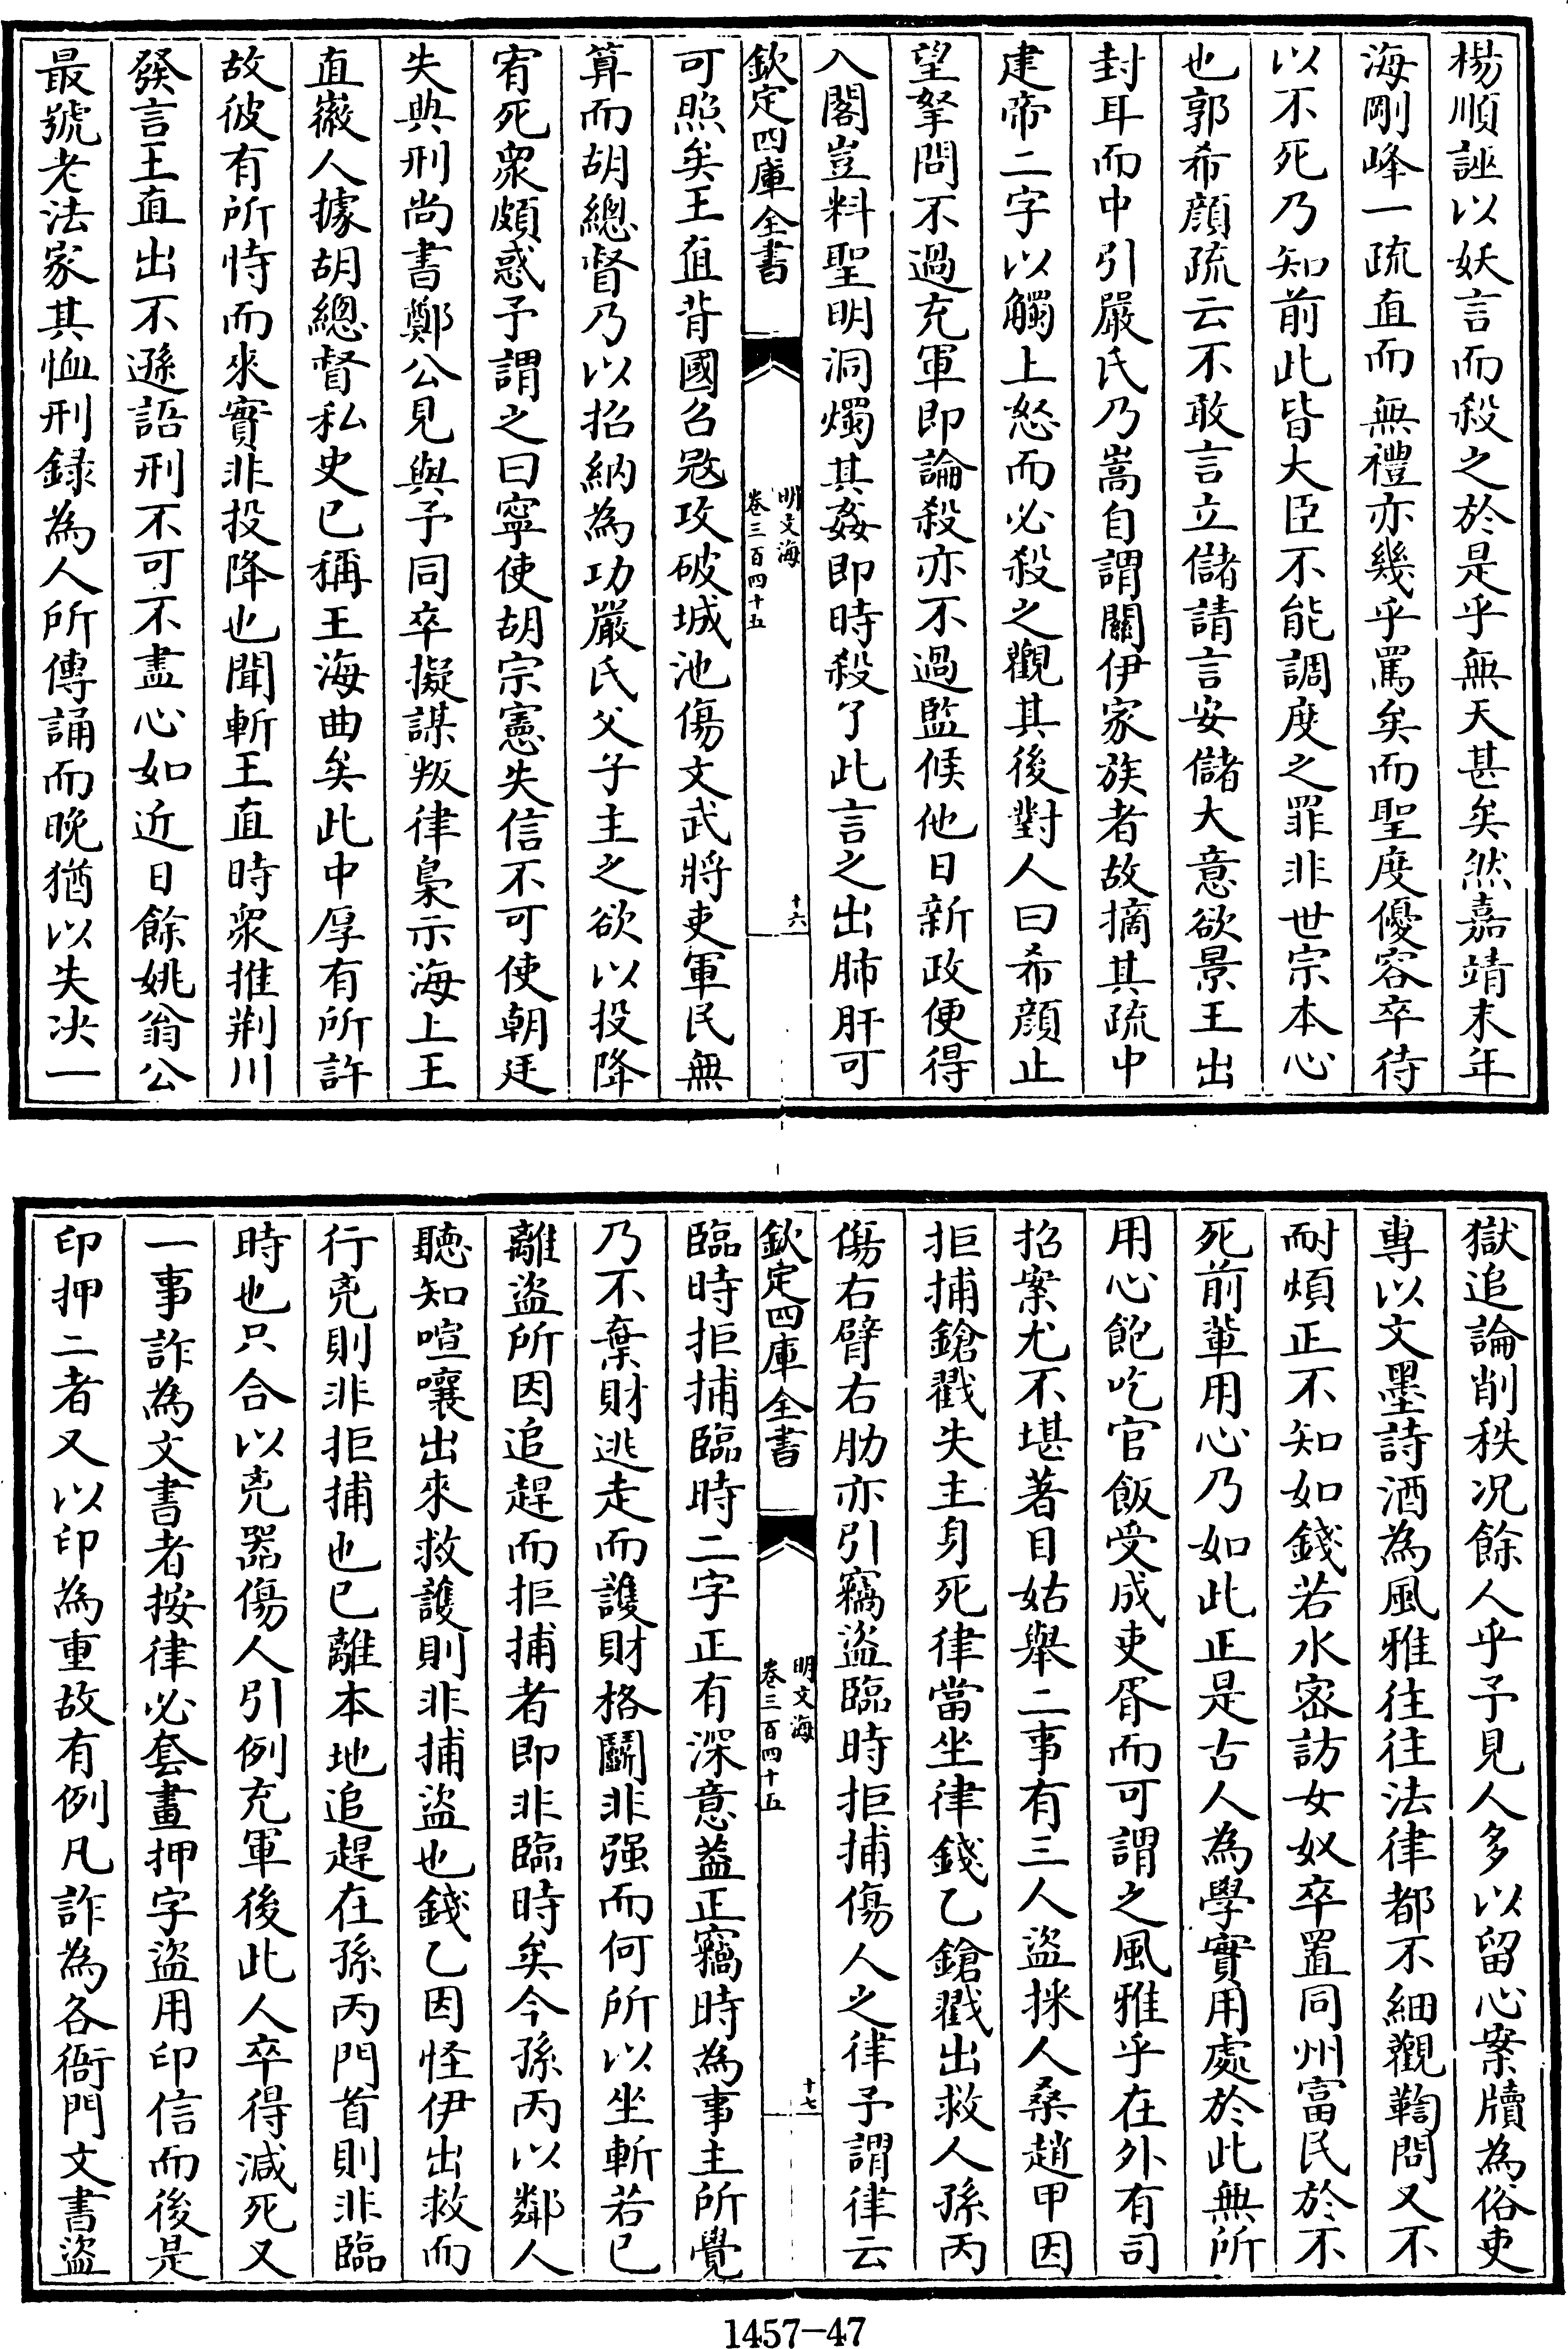 楊順誣以妖言而殺之於是乎無天甚矣然嘉靖末年
海剛峰一疏直而無禮亦幾乎罵矣而聖度優容卒待
以不死乃知前此皆大臣不能調度之罪非世宗本心
也郭希顔疏云不敢言立儲請言安儲大意欲景王出
封耳而中引嚴氏乃嵩自謂關伊家族者故摘其疏中
建帝二字以觸上怒而必殺之觀其後對人曰希顔止
望拏問不過充軍即論殺亦不過監候他日新政便得
入閣豈料聖明洞燭其姦即時殺了此言之出肺肝可
欽定四庫全書
明文海
卷三百四十五
十六
可照矣王直背國召冦攻破城池傷文武將吏軍民無
算而胡總督乃以招納為功嚴氏父子主之欲以投降
宥死衆頗惑予謂之曰寧使胡宗憲失信不可使朝廷
失典刑尚書鄭公見與予同卒擬謀叛律梟示海上王
直徽人據胡總督私史已稱王海曲矣此中厚有所許
故彼有所恃而來實非投降也聞斬王直時衆推荆川
發言王直出不遜語刑不可不盡心如近日餘姚翁公
最號老法家其恤刑録為人所傳誦而晩猶以失决一
獄追論削秩况餘人乎予見人多以留心案牘為俗吏
專以文墨詩酒為風雅往往法律都不細觀鞫問又不
耐煩正不知如錢若水宻訪女奴卒置同州富民於不
死前輩用心乃如此正是古人為學實用處於此無所
用心飽吃官飯受成吏胥而可謂之風雅乎在外有司
招案尤不堪著目姑舉二事有三人盜採人桑趙甲因
拒捕鎗戳失主身死律當坐律錢乙鎗戳出救人孫丙
傷右臂右肋亦引竊盜臨時拒捕傷人之律予謂律云
欽定四庫全書
明文海
卷三百四十五
十七
臨時拒捕臨時二字正有深意葢正竊時為事主所覺
乃不棄財逃走而護財格鬭非强而何所以坐斬若已
離盜所因追趕而拒捕者即非臨時矣今孫丙以鄰人
聽知喧嚷出來救護則非捕盜也錢乙因怪伊出救而
行兇則非拒捕也已離本地追趕在孫丙門首則非臨
時也只合以兇器傷人引例充軍後此人卒得減死又
一事詐為文書者按律必套畫押字盜用印信而後是
印押二者又以印為重故有例凡詐為各衙門文書盜
1457-47